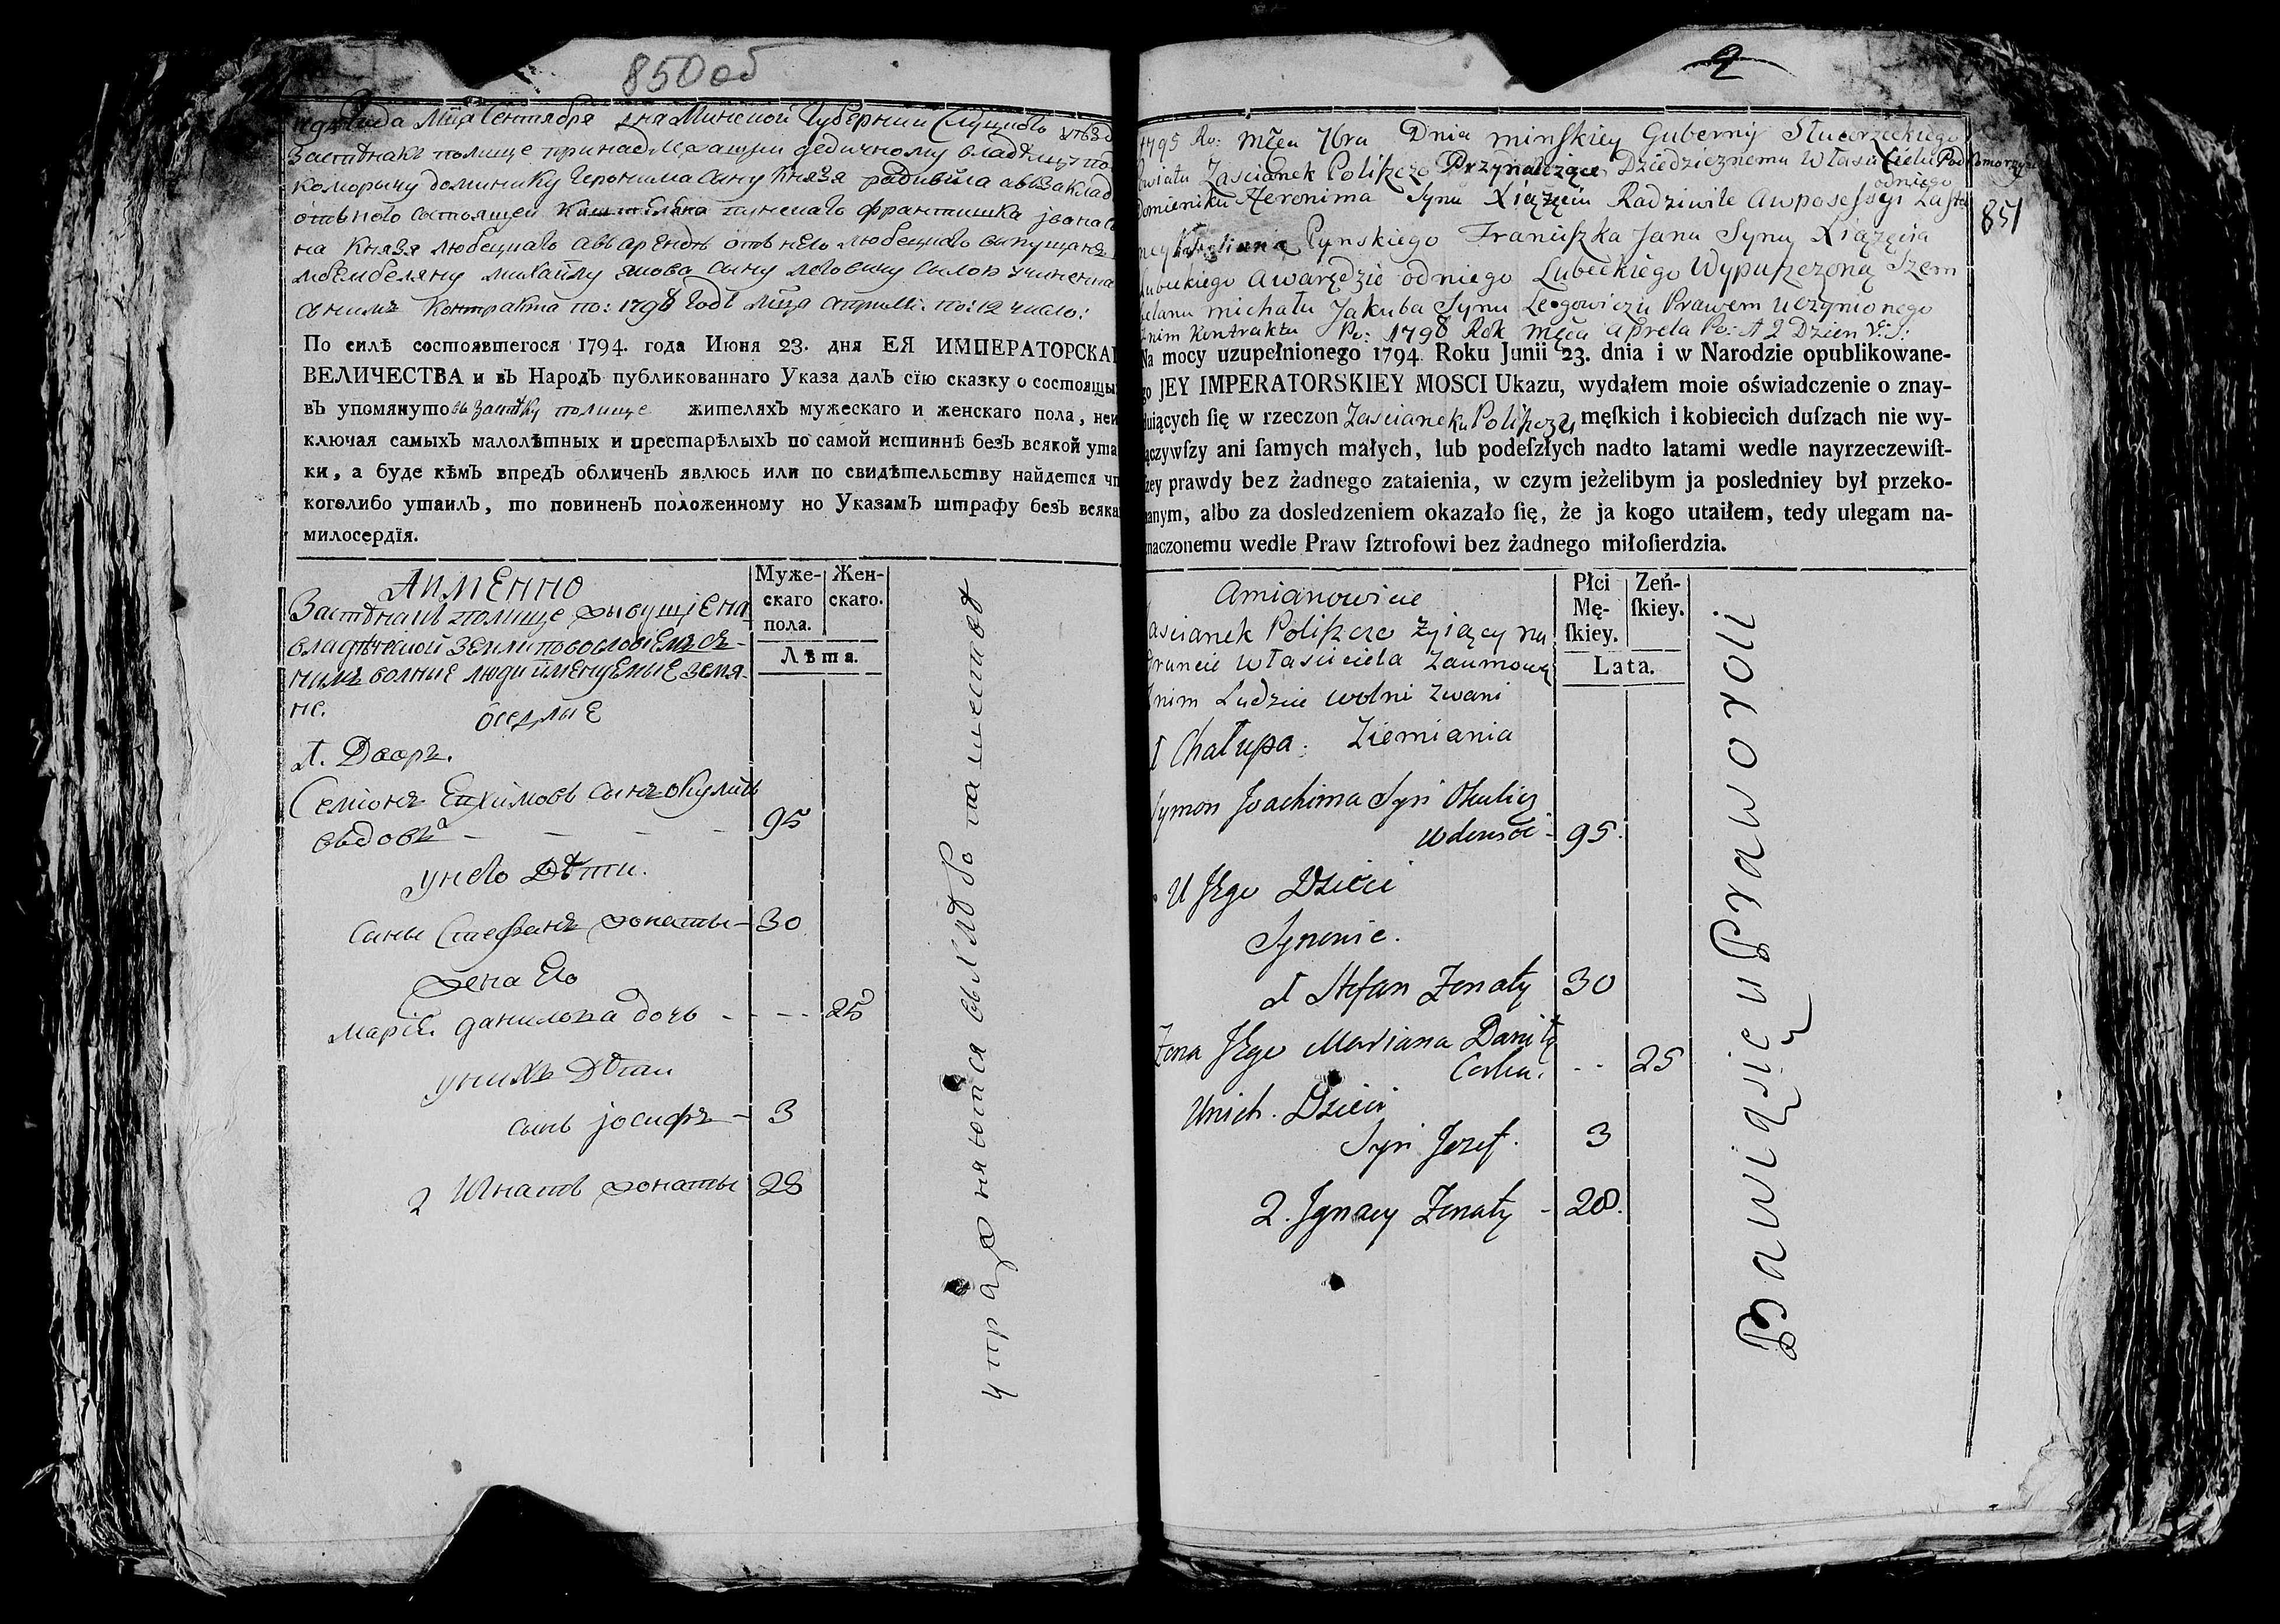 850 об
1795 Года Мца Сентября дня Минской Губернии Слуцкого уезда
Застѣнакъ полище принадлежащии дедичному владѣлцу по
коморыну доминику Iеронима сыну Князя радивила авъ заклад
отъ него состоящей Каштеляна пинскаго франтишка јвана сы
на Князя любецкаго авъ арендѣ отъ него любецкаго выпущана
михайлу якова сыну леговичу силою учиненна
снимъ контракта по: 1798 годъ мца априля: по: 12 число:
По силѣ состоявшегося 1794. года Июня 23. дня ЕЯ ИМПЕРАТОРСКА
ВЕЛИЧЕСТВА и въ НародЪ публикованнаго Указа далЪ сїю сказку о состоящы
въ упомянутовъ застѣнку полище жителяхЪ мужескаго и женскаго пола, неи
ключая самыхЪ малолѣтныхЪ и престарѣлыхЪ по самой истиннѣ безЪ всякой ута
ки, а буде кѣмЪ впредЪ обличенЪ явлюсь или по свидѣтельству найдется чт
коголибо утаилЪ, то повиненЪ положенному по УказамЪ штрафу безЪ всяка
милосердїя.
АИМЕННО
Муже-скаго пола.
Жен-скаго.
Лѣта.
Застѣнакъ полище живущіе на
владѣлской земли пословіемъ съ
нимъ волные люди именуемые земя-
не.
оседлые
1. Дворъ.
Семіонъ Ехимовъ сынъ окуличъ
вдовъ - - - - 95
у него Дѣти.
Сыны Стефанъ жонаты - 30
жена Его
марія данилова дочь - - - - 25
у нихъ Дѣти
сынъ јосифъ - 3
2 Игнатъ жонаты 28
упражняются въ хлебопашестве
2
851
1795 Ro: Mca 7bra Dnia minskiey Guberny Słucorzeckiego
Powiatu Zascianek Poliszcze Przynależące Dziedzicznemu Własicielu Podkomorzyc
Domieniku Heronima Synu Xiążęciu Radziwile Awposessyi Zasta
odniego
Pynskiego Franciszka Jana Synu Xiążęcia
Lubeckiego Awarędzie odniego Lubeckiego Wypuszczoną Szem
belanu michału Jakuba Synu Legowiczu Prawem uczynionego
znim Kontraktu Po: 1798 Rok Męca aprela Po: 12 Dzien V: S:
Na mocy uzupełnionego 1794 Roku Junii 23. dnia i w Narodzie opublikowane-
go JEY IMPERATORSKIEY MOSCI Ukazu, wydałem moie oświadczenie o znay-
duiących ſię w rzeczon Zascianeku Poliszczu męſkich i kobiecich duſzach nie wy-
łączywſzy ani ſamych małych, lub podeſzłych nadto latami wedle nayrzeczewiſt-
ſzey prawdy bez żadnego zataienia, w czym jeżelibym ja posledniey był przeko-
nanym, albo za dosledzeniem okazało ſię, że ja kogo utaiłem, tedy ulegam na-
znaczonemu wedle Praw ſztrofowi bez żadnego miłoſierdzia.
Amianowicie
Płci Mę-ſkiey.
Zeń-ſkiey.
Lata.
Zascianek Poliszcze Zyiący na
Gruncie Własiciela Zaumową
Znim Ludzie wolni zwani
1 Chałupa. Ziemiania
Symon Joachima Syn Okulicz
wdowiec - 95.
U Jego Dzieci
Synowie.
1 Stefan Zonaty 30
Zona Jego Mariana Daniły
Corka. - - 25
Unich. Dzieci
Syn Jozef. 3
2. Jgnacy Zonaty - 28.
Bawiąsię u Prawo roli